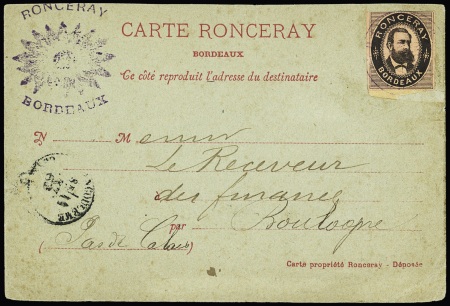 RONCERAY
BORDEAUX
CARTE RONCERAY
BORDEAUX
Ce côté reproduit l'adresse du destinataire
RONCERAY
BORDEAUX
N M essieur
Le Receveur
des finances
par Boulogne
(Pas de Calais)
Carte propriété Ronceray - Déposée